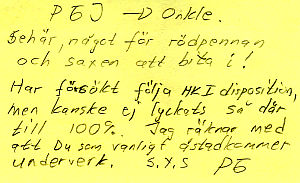 PEJ → Onkle.
Sehär, något för rödpennan
och saxen att bita i!
Har försökt följa HKI disposition,
men kanske ej lyckats så där
till 100%. Jag räknar med
att Du som vanligt åstadkommer
underverk. S.Y.S PE